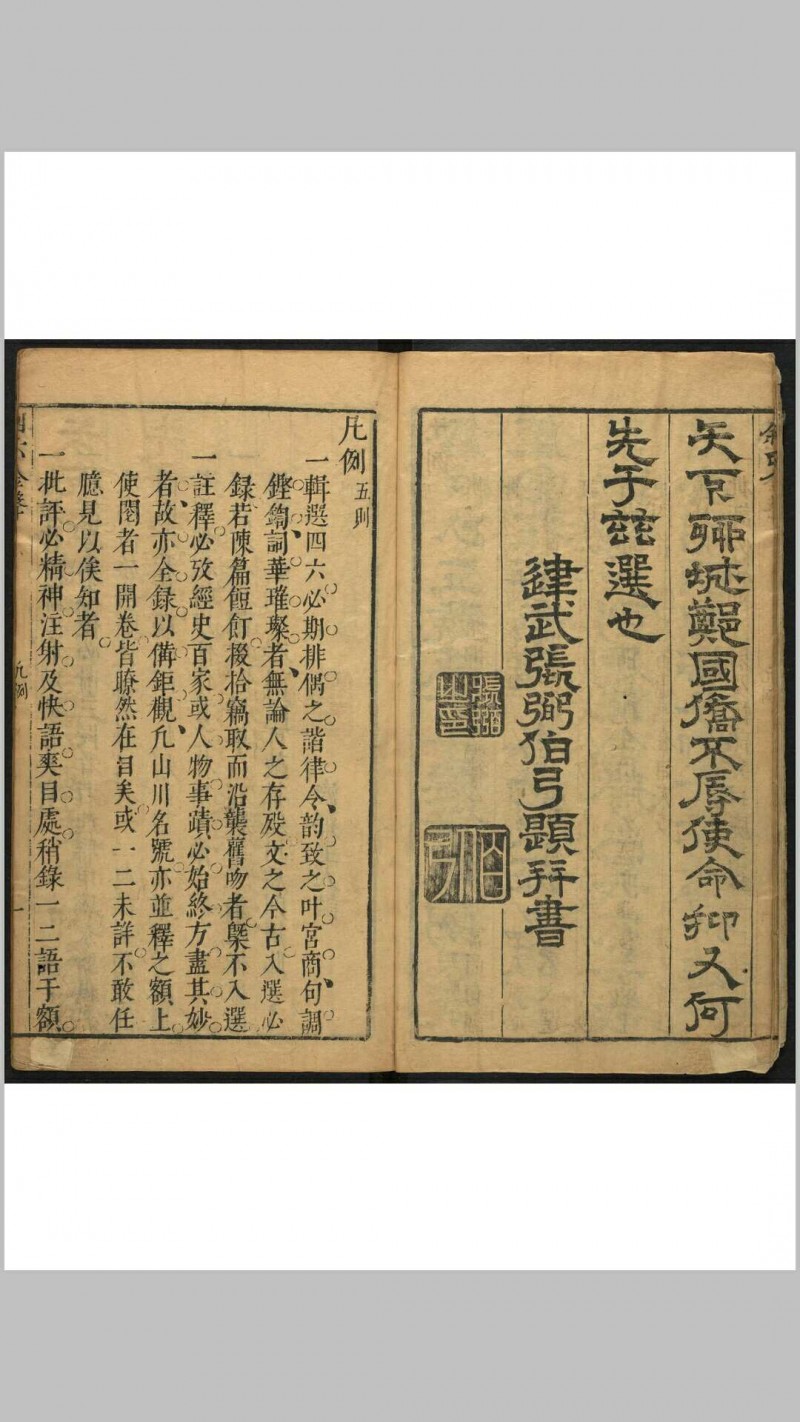 天下歸誠鄭國僑不辱使命抑又何
先于茲選也
建武張弼伯弓題拜書
凡例 五則
一輯選四六必期排偶之諧律令韵致之叶宮商句調
鏗鍧詞華璀璨者無論人之存歿文之今古入選必
録若陳篇飣餖掇拾竊取而沿襲舊吻者槩不入選
一註釋必攷經史百家或人物事蹟必始終方盡其妙
者故亦全録以備鉅觀凡山川名號亦並釋之額上
使閱者一開卷皆瞭然在目矣或一二未詳不敢任
臆見以俟知者
一批評必精神注射及快語爽目處稍錄一二語于額
凡例
一